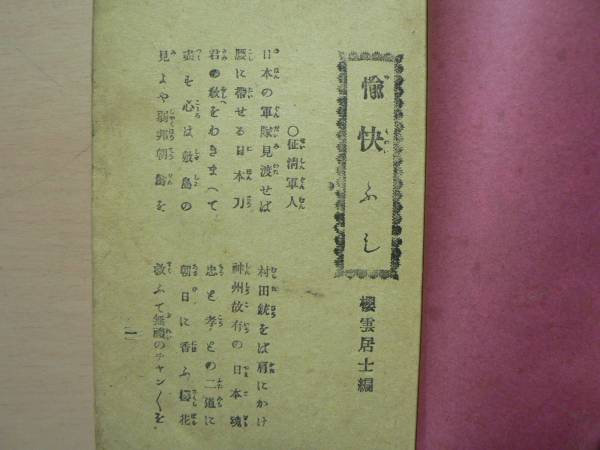 愉快ぶし
櫻雲居士編
〇征淸軍人
日本の軍隊見渡せば　村田銃をば肩にかけ
腰に帶せる日本刀　神州故有の日本魂
君の敎をわきまへて　忠と孝との二道に
盡も心は敷島の　朝日に香ふ櫻花
見よや弱邦朝鮮を　救ふて無禮のチヤン〱を
一